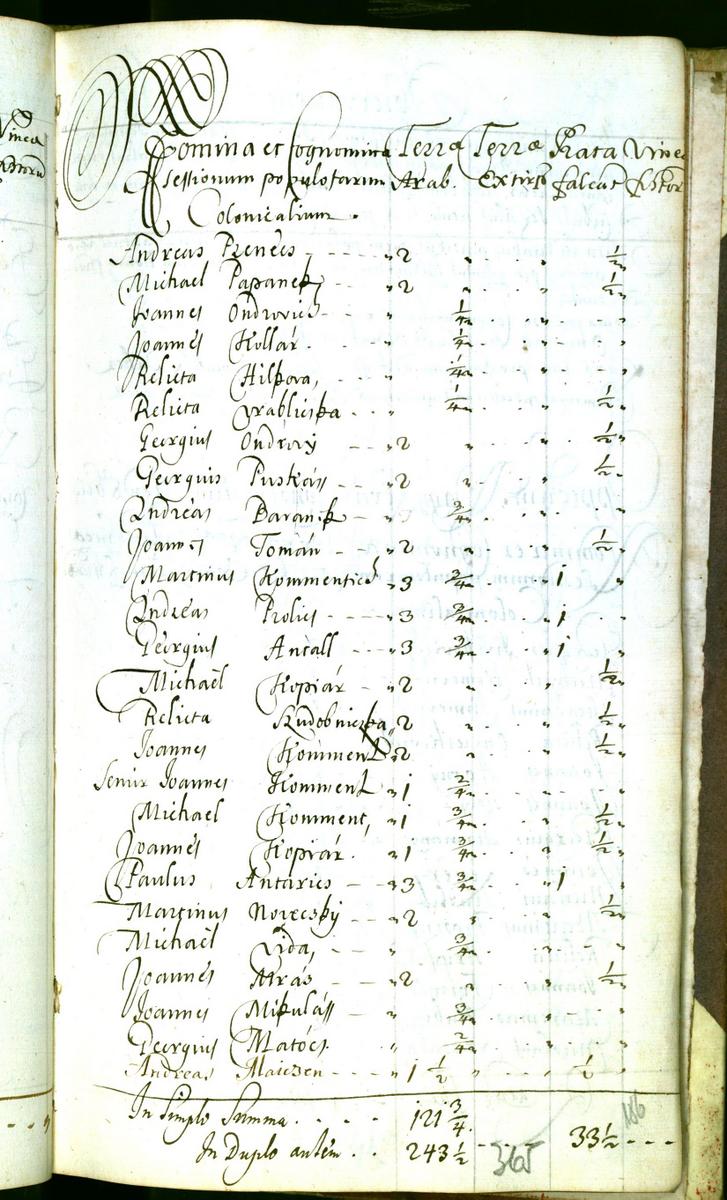 Nomina et Cognomina Terræ Terræ Prata Vinea
Sessionum populosarum Arab. Extirp falcat fossor
Colonicalium.
Andreas Benees - - - - „2 „ „ ½„
Michael Papanek „2 „ „ ½„
Joannes Ondrovich - - - „ ¼„ „ „
Joannes Kollár - - „ ¼„ „ „
Relicta Hilkova, - - „ ¼„ „ „
Relicta Vrablicska - - „ ¼„ „ ½„
Georgius Ondrovy - - - „2 „ „ ½„
Georgius Puskáss - - „2 „ „ ½„
Andreas Baranek - - „3 ¾„ „ „
Joannes Toman - - „2 „ „ ½„
Martinus Kommentich „3 ¾„ „1 „
Andreas Prolics - - - „3 ¾„ „1 „
Georgius Antall - - - „3 ¾„ „1 „
Michaël Kopiár - - „2 „ „ ½„
Relicta Kudobniczka „2 „ „ ½„
Joannes Komment „2 „ „ ½„
Senior Joannes Komment „1 2/4„ „ „
Michael Komment, „1 ¾„ „ ½„
Joannes Kopiár. - „1 ¾„ „ ½„
Paulus Antarics - - „3 ¾„ „1 „
Martinus Novecsky - „2 „ „ ½„
Michaël Vida, - - - „ ¾„ „ „
Joannes Atrás - - „2 „ „ ½„
Joannes Mikuláss „ ¾„ „ „
Georgius Matocs. „ 2/4„ „ „
Andreas Maiczen - - „1 ½ „ „ ½ „
In Simplo Summa. . . . 121 ¾.
In Duplo autem. . . 243 ½ - - - 33 ½ - - -
365
186